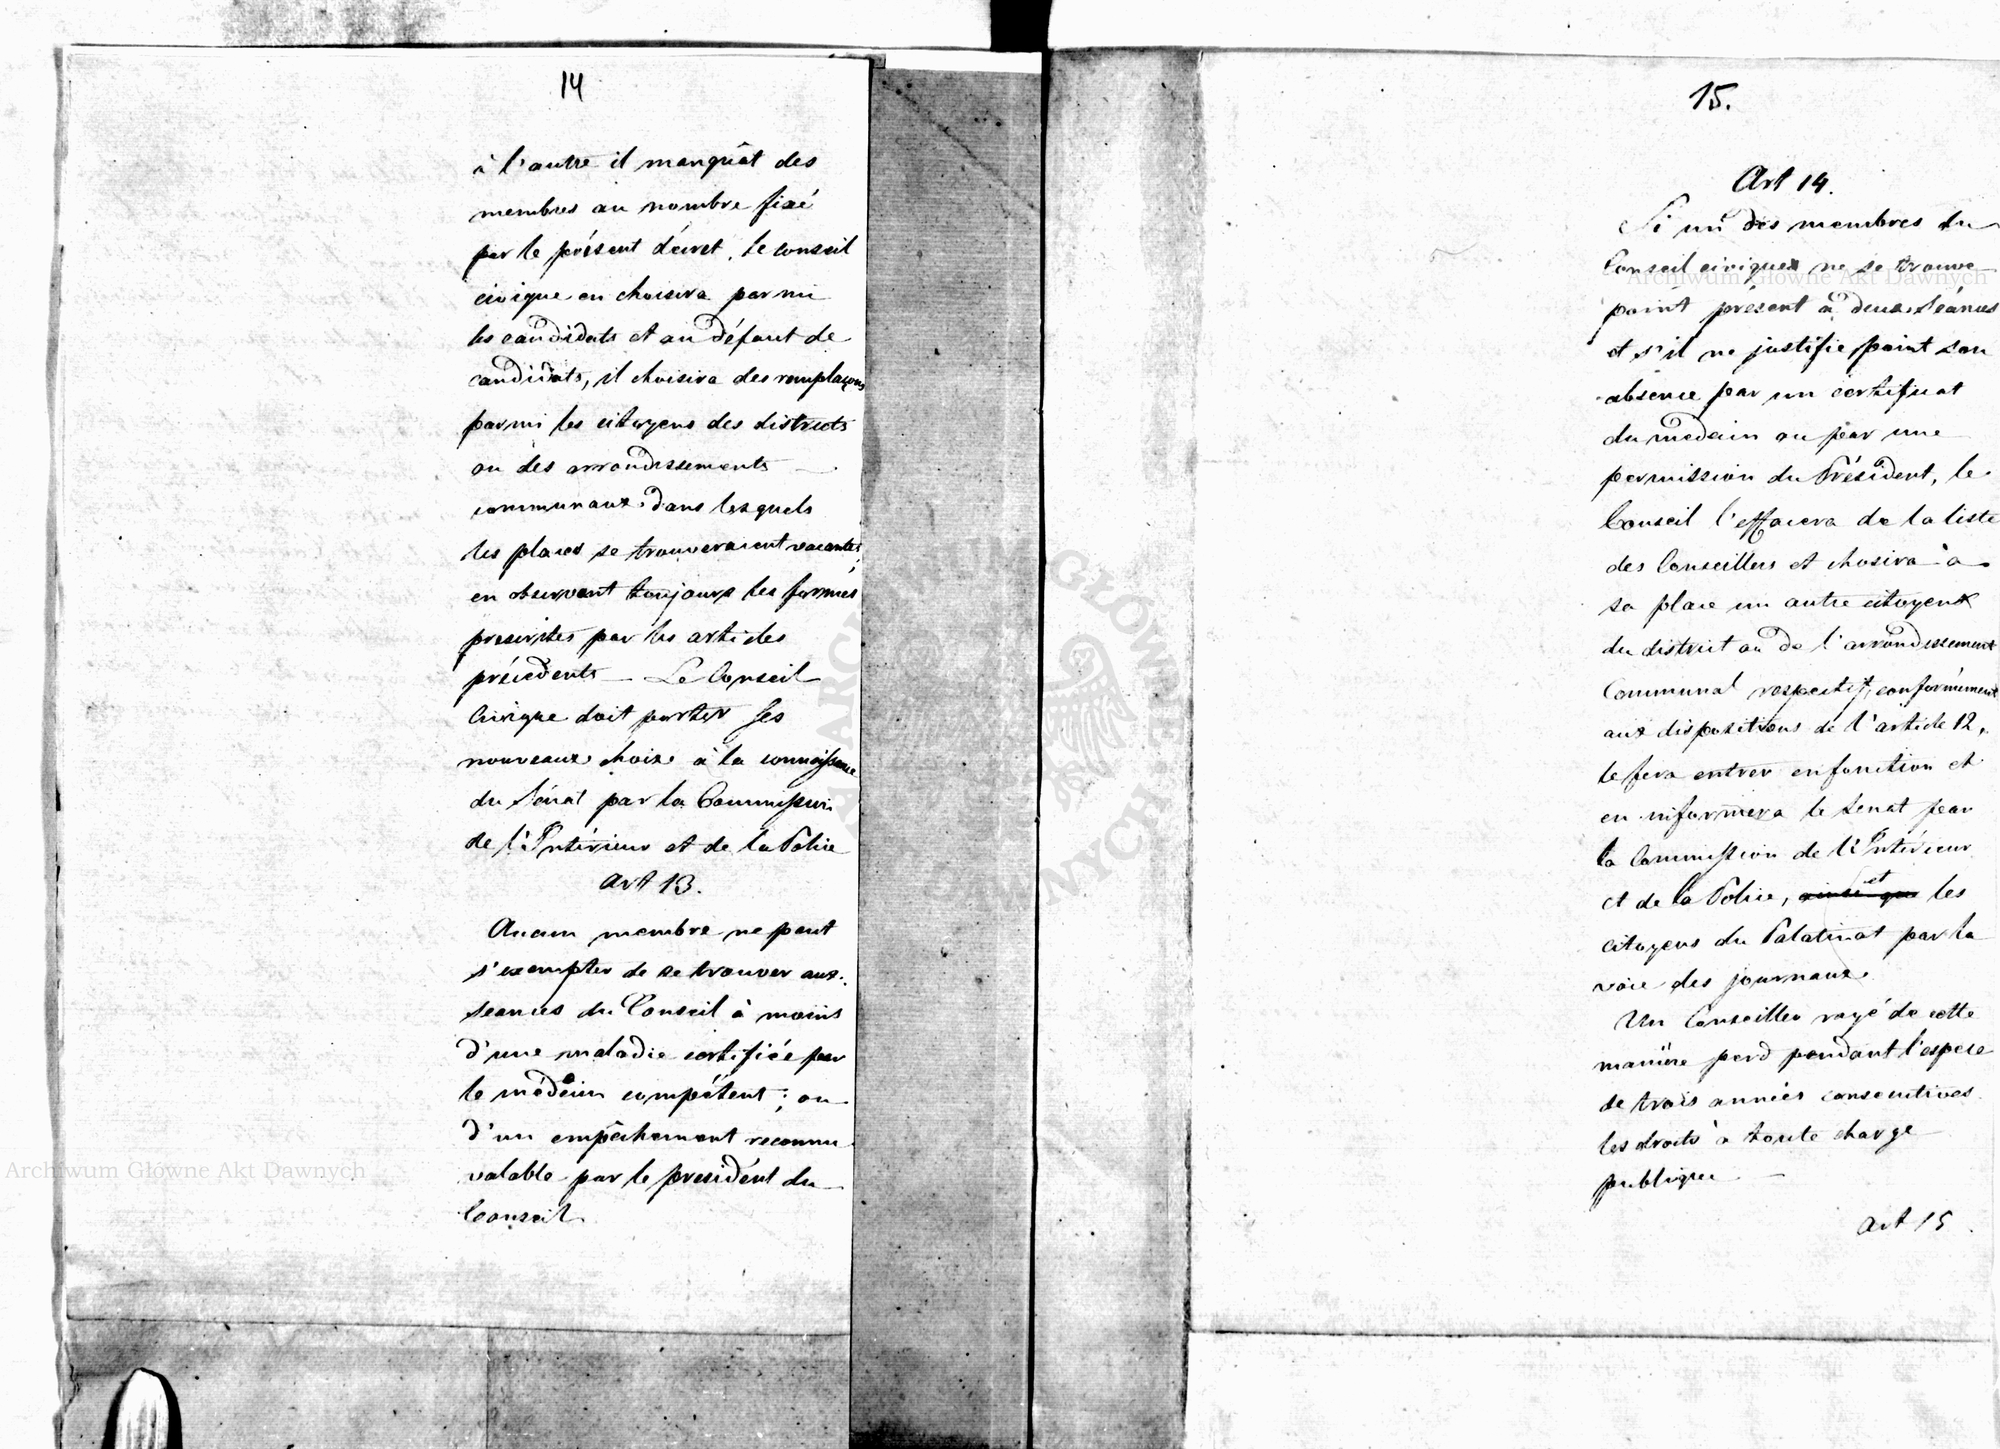 14
à l'autre il manquât des
membres au nombre fixé
par le présent décret, le conseil
civique en choisira parmi
les candidats et au défaut de
candidats, il choisira des remplaçans
parmi les citoyens des districts
ou des arrondissements
communaux dans lesquels
les places se trouveraient vacantes,
en observant toujours les formes
prescrites par les articles
précédents — Le Conseil
Civique doit porter ses
nouveaux choix à la connaissance
du Sénat par la Commission
de l'Intérieur et de la Police
Art 13.
Aucun membre ne peut
s'exempter de se trouver aux
seances du Conseil à moins
d'une maladie certifiée par
le médecin compétent; ou
d'un empêchement reconnu
valable par le president du
Conseil.
15.
Art 14.
Si un des membres du
Conseil civique ne se trouve
point présent à deux Séances
et s'il ne justifie point son
absence par un certificat
du medecin ou par une
permission du Président, le
Conseil l'effacera de la liste
des Conseillers et chosira à
sa place un autre citoyen
du district ou de l'arrondissement
Communal respectif, conformément
aux dispositions de l'article 12,
le fera entrer en fonction et
en informera le Senat par
la Commission de l'Intérieur
et de la Police, ainsi que et les
citoyens du Palatinat par la
voie des journaux.
Un Conseiller rayé de cette
manière perd pendant l'espace
de trois années consecutives
les droits à toute charge
publique —
Art 15.
Archiwum Główne Akt Dawnych
Archiwum Główne Akt Dawnych
ARCHIWUM GŁÓWNE AKT DAWNYCH